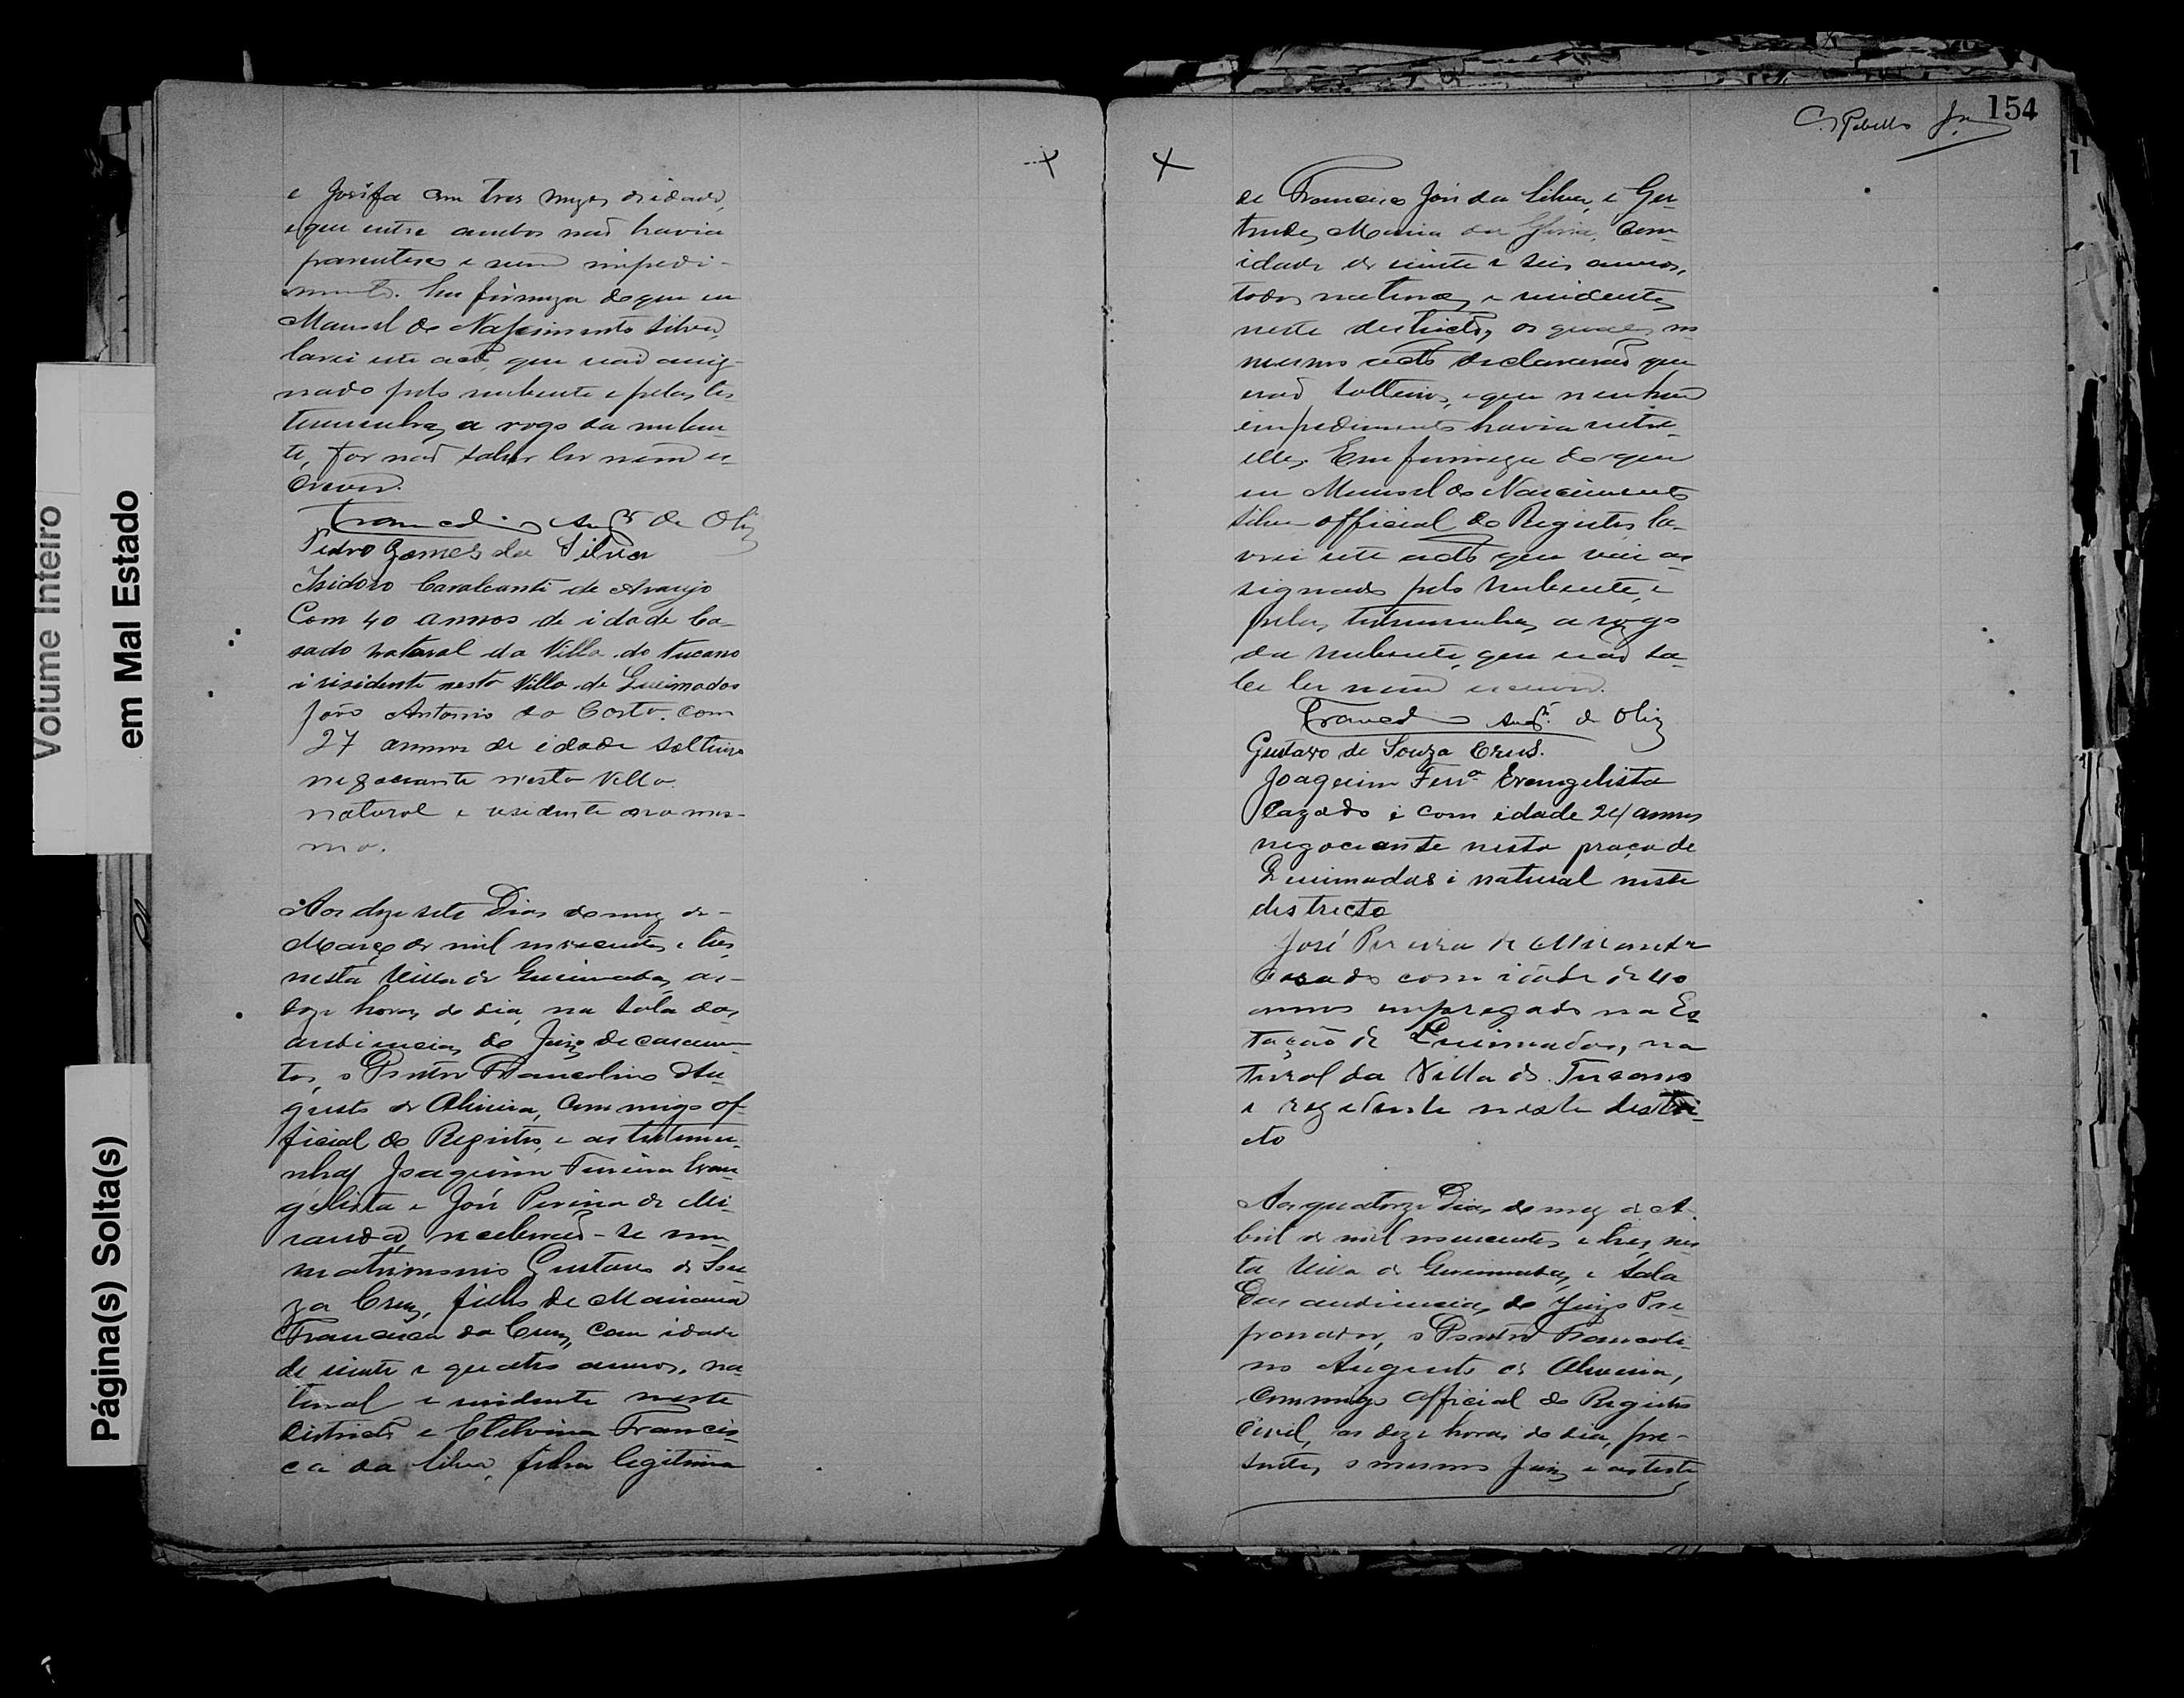 Volume Inteiro
em Mal Estado
Página(s) Solta(s)
e Josifa com tres mezes de idade,
e que entre ambos não havia
parentesco e nem impedi-
mento. Em firmeza do que eu
Manoel do Nascimento Silva,
lavrei este acto, que vai assig-
nado pelo nubente e pelas tes-
temunhas, a rogo da nuben-
te, por não saber ler nem es-
crever.
Francolino Augto de Olivª
Pedro Gomes da Silva
Isidoro Cavalcanti de Araujo
Com 40 annos de idade Ca-
sado natural da Villa do Tucano
i risidente nesta Villa de Queimadas
João Antonio da Costa. com
27 annos de idade solteiro
negociante nesta Villa.
natural e residente na mes-
ma.
Aos dezesete Dias do mez de
Março de mil novecentos e tres,
nesta Villa de Queimadas, as
doze horas do dia, na sala das
audiencias do Juizo de casamen-
tos, o Pretor Francolino Au-
gusto de Oliveira, commigo of-
ficial do Registro, e as testemu-
nhas Joaquim Ferreira Evan-
gelista e José Pereira de Mi-
randa, receberão-se em
matrimonio Gustavo de Sou-
za Cruz, filho de Marianna
Francisca da Cruz, com idade
de vinte e quatro annos, na-
tural e residente neste
districto e Etelvina Francis-
ca da Silva, filha legitima
154
C. Rebello Jr
de Francisco José da Silva, e Ger-
trudes Maria da Gloria, com
idade de vinte e seis annos,
todos naturaes e residentes
neste districto, os quaes no
mesmo acto declararão que
erão solteiros, e que nenhum
impedimento havia entre
elles. Em firmeza do que
eu Manoel do Nascimento
Silva official do Registro, la-
vrei este acto que vai as-
signado pelo nubente, e
pelas testemunhas, a rogo
da nubente, que não sa-
be ler nem escrever.
Francolino Augto de Olivª
Gustavo de Souza Crus.
Joaquim Ferrª Evangelista
Cazado i com idade 24 annos
negociante nesta praça de
Queimadas i natural neste
districto
José Pereira de Miranda
Casado com idade de 40
annos empregado na Es-
tação de Queimadas, na
tural da Villa do Tucano
e rezedente neste destri-
cto
Aos quatorze Dias do mez de A-
bril de mil novecentos e tres, nes-
ta Villa de Queimadas, e sala
das audiencias, do Juizo Pre-
parador, o Pretor Francoli-
no Augusto de Oliveira,
commigo official do Registro
Civil, as doze horas do dia, pre-
sentes, o mesmo Juiz e as teste